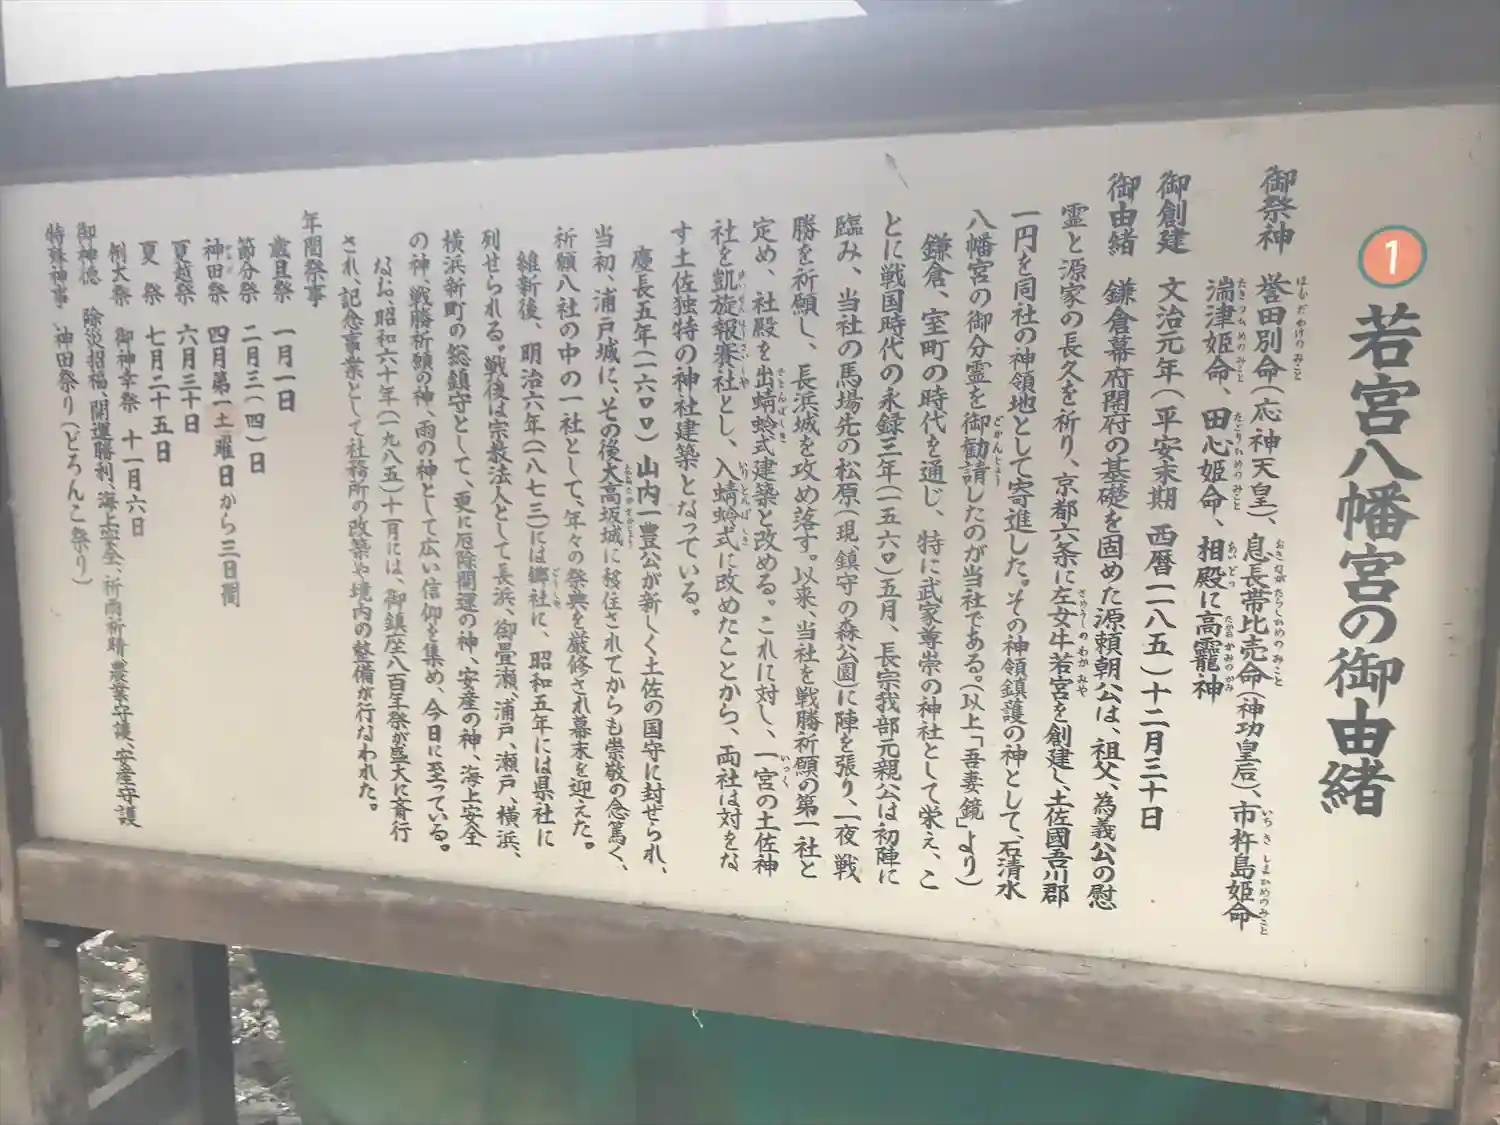 1 若宮八幡宮の御由緒
御祭神 誉田別命(応神天皇)、息長帯比売命(神功皇后)、市杵島姫命
湍津姫命、田心姫命、相殿に高龗神
御創建 文治元年(平安末期 西暦一一八五)十二月三十日
御由緒 鎌倉幕府開府の基礎を固めた源頼朝公は、祖父、為義公の慰
霊と源家の長久を祈り、京都六条に左女牛若宮を創建し、土佐國吾川郡
一円を同社の神領地として寄進した。その神領鎮護の神として、石清水
八幡宮の御分霊を御勧請したのが当社である。(以上「吾妻鏡」より)
鎌倉、室町の時代を通じ、特に武家尊崇の神社として栄え、こ
とに戦国時代の永録三年(一五六〇)五月、長宗我部元親公は初陣に
臨み、当社の馬場先の松原(現、鎮守の森公園)に陣を張り、一夜戦
勝を祈願し、長浜城を攻め落す。以来、当社を戦勝祈願の第一社と
定め、社殿を出蜻蛉式建築と改める。これに対し、一宮の土佐神
社を凱旋報賽社とし、入蜻蛉式に改めたことから、両社は対をな
す土佐独特の神社建築となっている。
慶長五年(一六〇〇)山内一豊公が新しく土佐の国守に封ぜられ、
当初、浦戸城に、その後大高坂城に移住されてからも崇敬の念篤く、
祈願八社の中の一社として、年々の祭典を厳修され幕末を迎えた。
維新後、明治六年(一八七三)には郷社に、昭和五年には県社に
列せられる。戦後は宗教法人として長浜、御畳瀬、浦戸、瀬戸、横浜、
横浜新町の総鎮守として、更に厄除開運の神、安産の神、海上安全
の神、戦勝祈願の神、雨の神として広い信仰を集め、今日に至っている。
なお、昭和六十年(一九八五)十一月には、御鎮座八百年祭が盛大に斉行
され、記念事業として社務所の改築や境内の整備が行なわれた。
年間祭事
歳旦祭 一月一日
節分祭 二月三(四)日
神田祭 四月第一土曜日から三日間
夏越祭 六月三十日
夏祭 七月二十五日
例大祭 御神幸祭 十一月六日
御神徳 除災招福、開運勝利、海上安全、祈雨祈晴、農業守護、安産守護
特殊神事 神田祭り(どろんこ祭り)